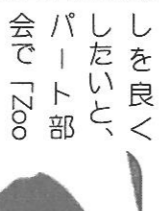 しを良く
したいと、
パート部
会で「Zoo